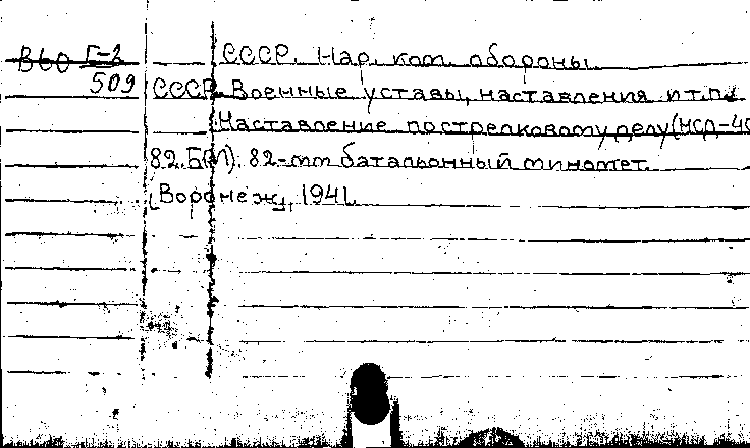 В60 Г-2 СССР. Нар. ком. обороны.
509 СССР. Военные уставы, наставления и т.п.
Наставление по стрелковому делу (НСД-40
82.БМ). 82-mm батальонный миномет.
[Воронеж], 1941.